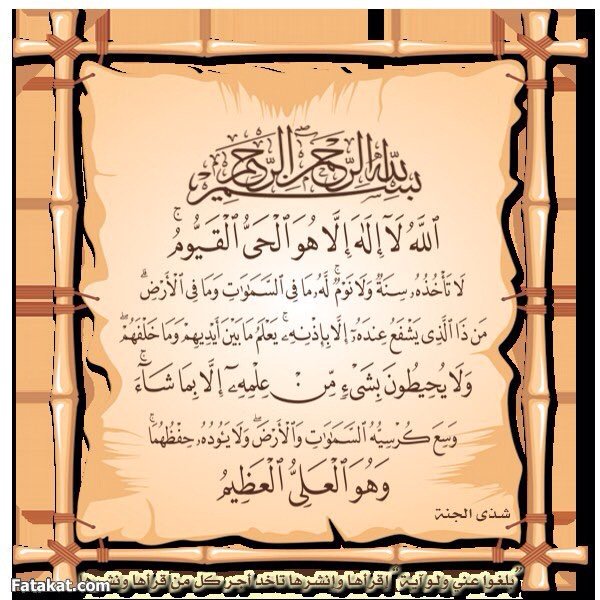 بِسْمِ اللَّهِ الرَّحْمَٰنِ الرَّحِيمِ
اللَّهُ لَا إِلَٰهَ إِلَّا هُوَ الْحَيُّ الْقَيُّومُ ۚ
لَا تَأْخُذُهُ سِنَةٌ وَلَا نَوْمٌ ۚ لَّهُ مَا فِي السَّمَاوَاتِ وَمَا فِي الْأَرْضِ ۗ
مَن ذَا الَّذِي يَشْفَعُ عِندَهُ إِلَّا بِإِذْنِهِ ۚ يَعْلَمُ مَا بَيْنَ أَيْدِيهِمْ وَمَا خَلْفَهُمْ ۖ
وَلَا يُحِيطُونَ بِشَيْءٍ مِّنْ عِلْمِهِ إِلَّا بِمَا شَاءَ ۚ
وَسِعَ كُرْسِيُّهُ السَّمَاوَاتِ وَالْأَرْضَ ۖ وَلَا يَئُودُهُ حِفْظُهُمَا ۚ
وَهُوَ الْعَلِيُّ الْعَظِيمُ
شذى الجنة
"بلغوا عني ولو آية" اقرأها وانشرها تاخذ أجر كل من قرأها ونشرها
Fatakat.com